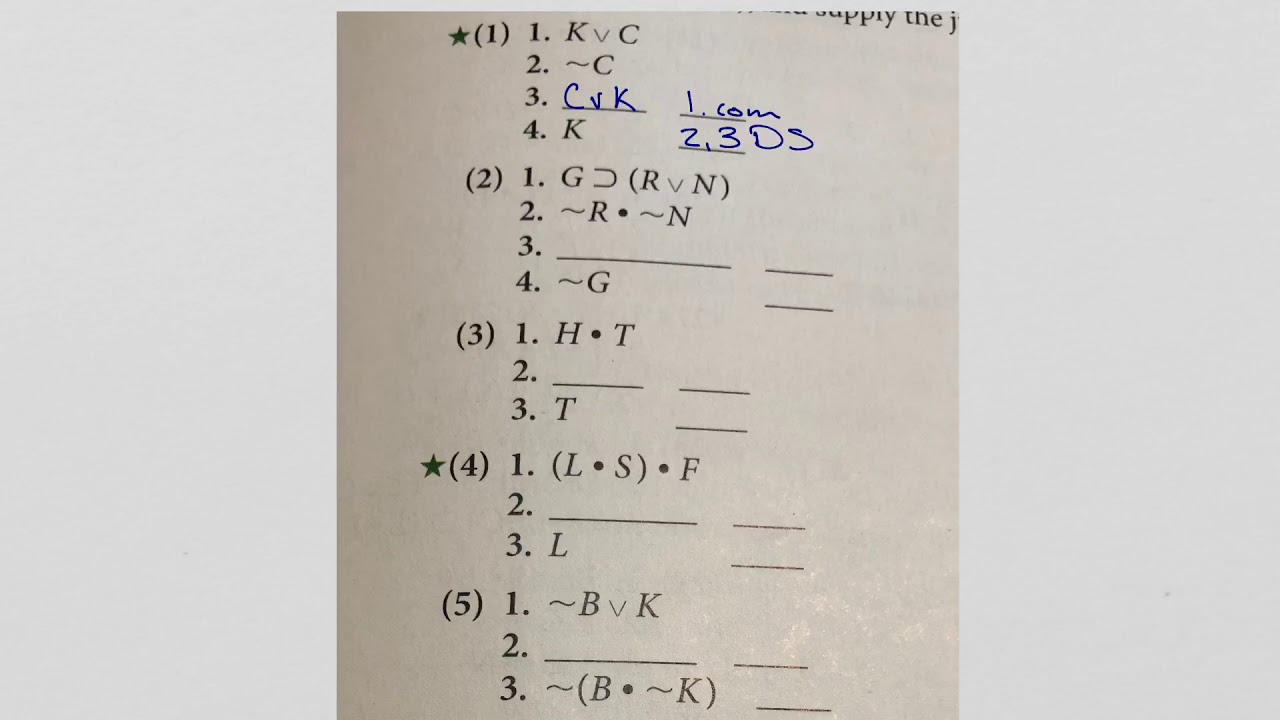 supply the j
★(1) 1. K ∨ C
2. ~C
3. C v K 1. com
4. K 2,3 DS
(2) 1. G ⊃ (R ∨ N)
2. ~R • ~N
3. ____ ____
4. ~G ____
(3) 1. H • T
2. ____ ____
3. T ____
★(4) 1. (L • S) • F
2. ____ ____
3. L ____
(5) 1. ~B ∨ K
2. ____ ____
3. ~(B • ~K) ____